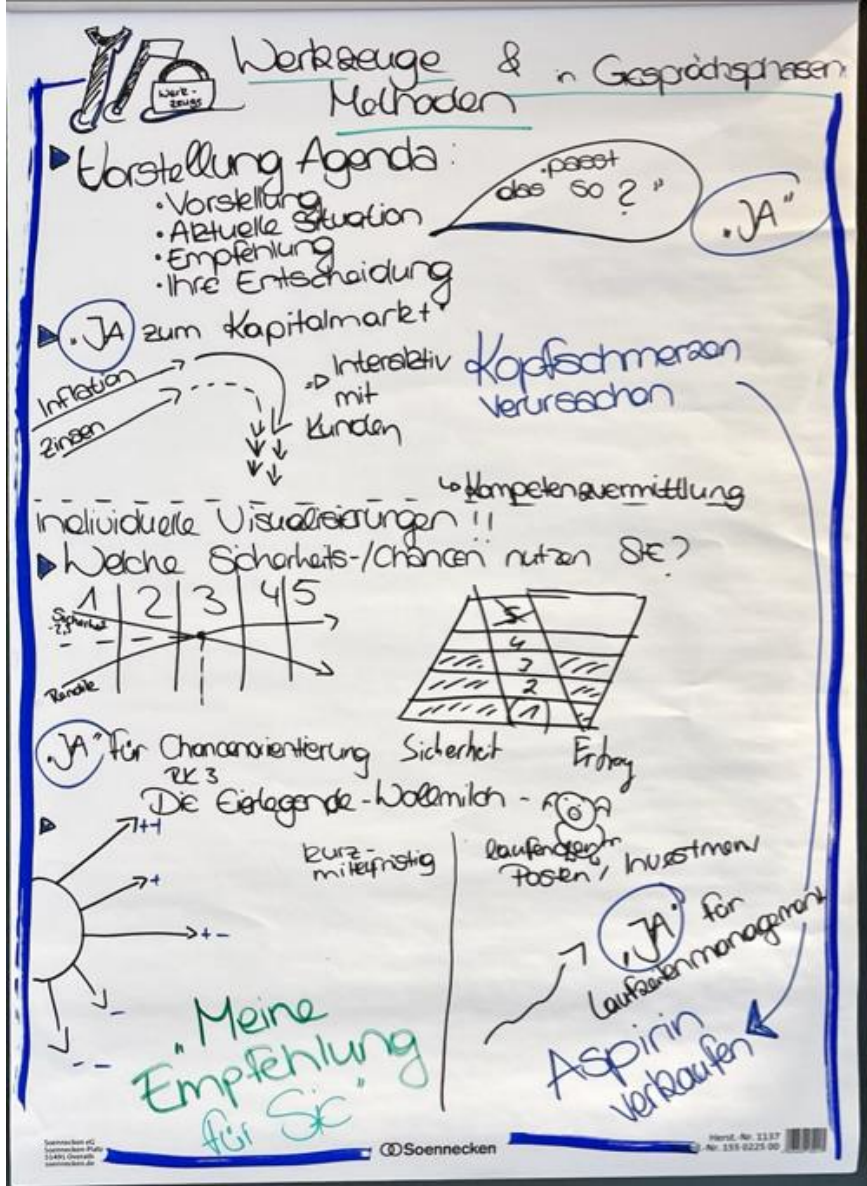 Werkzeuge & in Gesprächsphasen
Methoden
Werk-
zeuge
Vorstellung Agenda:
"passt
das so?"
"JA"
· Vorstellung
· Aktuelle Situation
· Empfehlung
· Ihre Entscheidung
"JA zum Kapitalmarkt"
Inflation
Zinsen
Interaktiv
mit
Kunden
Kopfschmerzen
verursachen
Kompetenzvermittlung
Individuelle Visualisierungen !!
Welche Sicherheits-/Chancen nutzen SIE?
1 2 3 4 5
Sicherheit
Rendite
5
4
3
2
1
Sicherheit Ertrag
"JA" für Chancenorientierung
RK 3
Die Eierlegende-Wollmilch-
++
+
+-
-
--
kurz-
mittelfristig
laufender
Posten / Investment
"JA" für
Laufzeitenmanagement
"Meine
Empfehlung
für Sie"
Aspirin
verkaufen
Soennecken eG
Soennecken-Platz
51491 Overath
soennecken.de
Soennecken
Herst.-Nr. 1137
-Nr. 155 0225 00